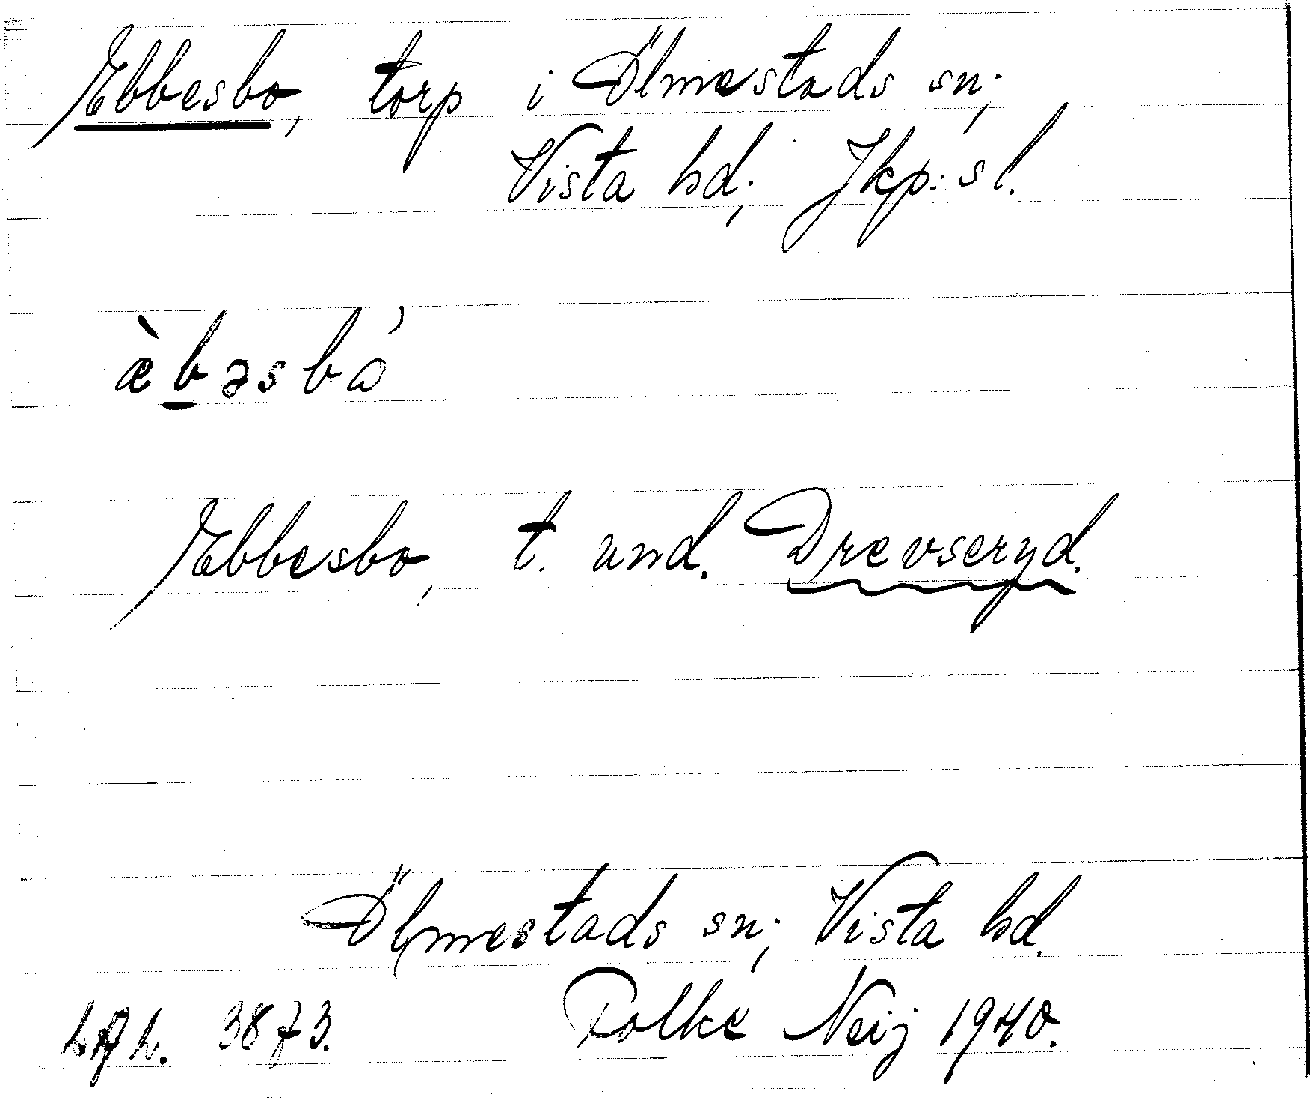 Ebbesbo, torp i Ölmestads sn;
Vista hd; Jkp: sl.
æ̀b̲əsbó
Ebbesbo, t. und. Drevseryd.
Ölmestads sn; Vista hd.
Folke Neij 1940.